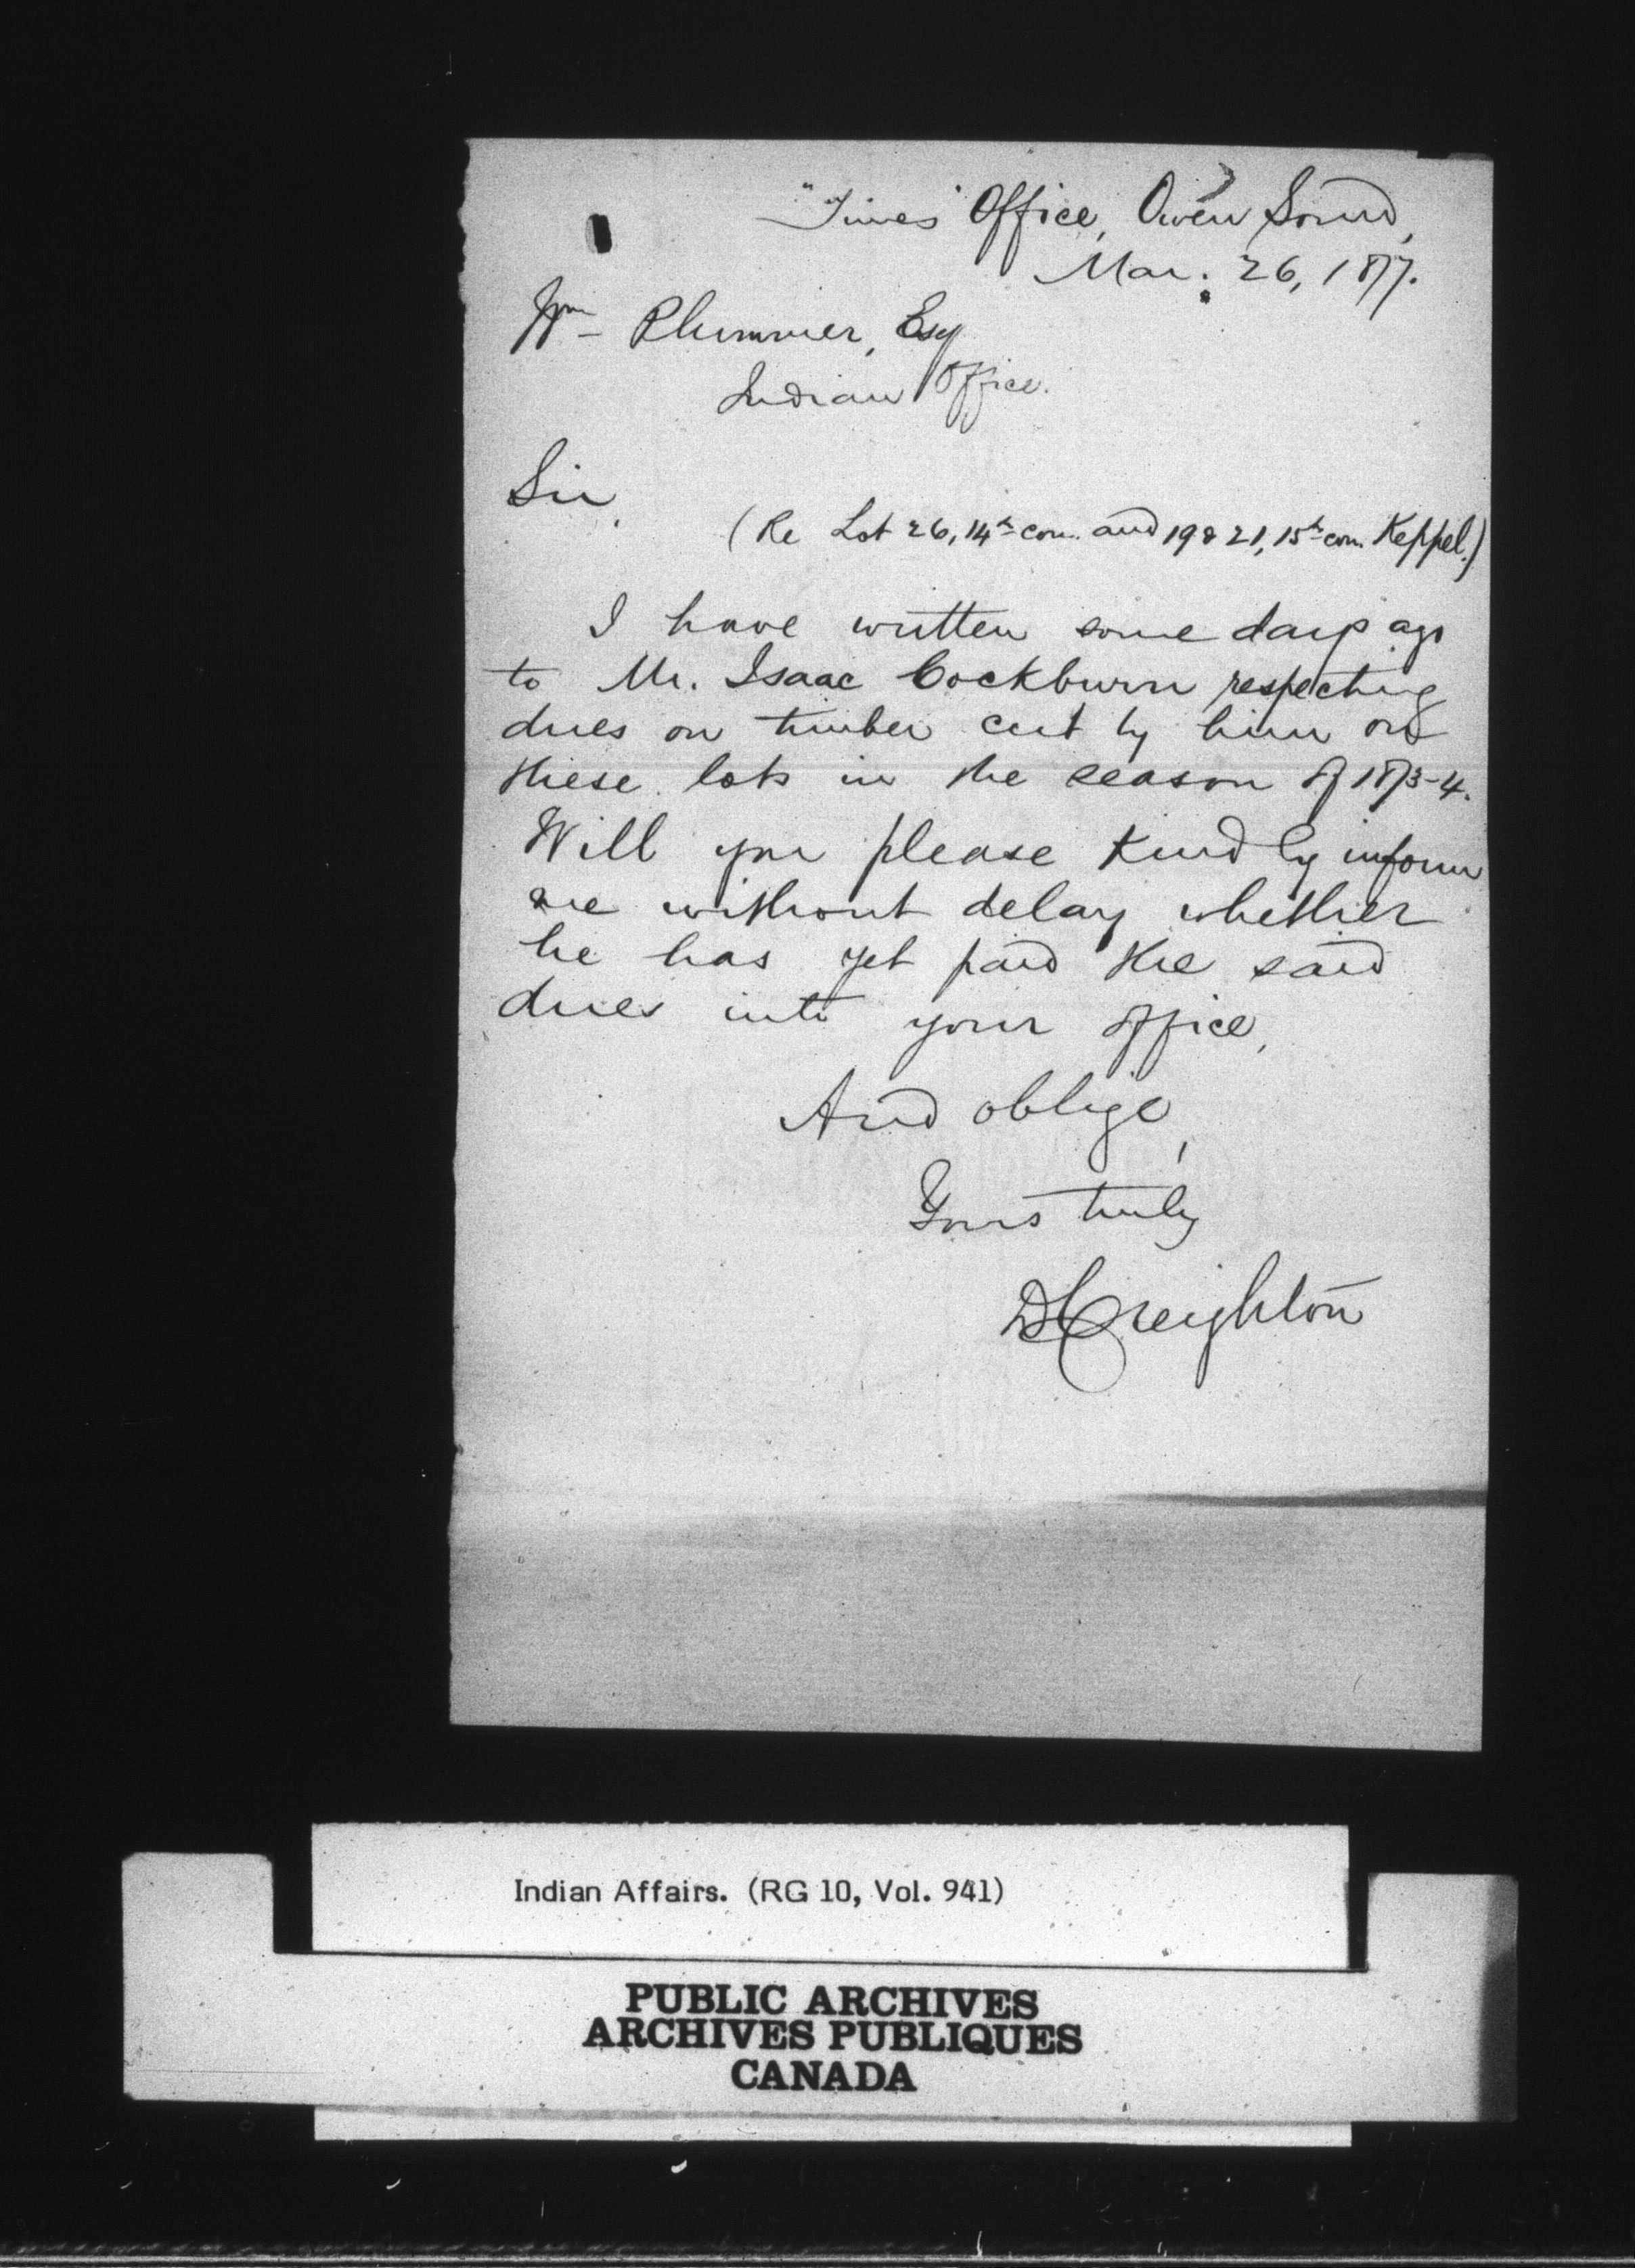 "Times" Office, Owen Sound,
Mar. 26, 1877.
Wm Plummer, Esq
Indian Office.
Sir,
(Re Lot 26, 14th con. and 19 & 21, 15th con. Keppel.)
I have written some days ago
to Mr. Isaac Cockburn respecting
dues on timber cut by him on
these lots in the season of 1873-4.
Will you please kindly inform
me without delay whether
he has yet paid the said
dues into your office,
And oblige,
Yours truly
D Creighton
Indian Affairs. (RG 10, Vol. 941)
PUBLIC ARCHIVES
ARCHIVES PUBLIQUES
CANADA